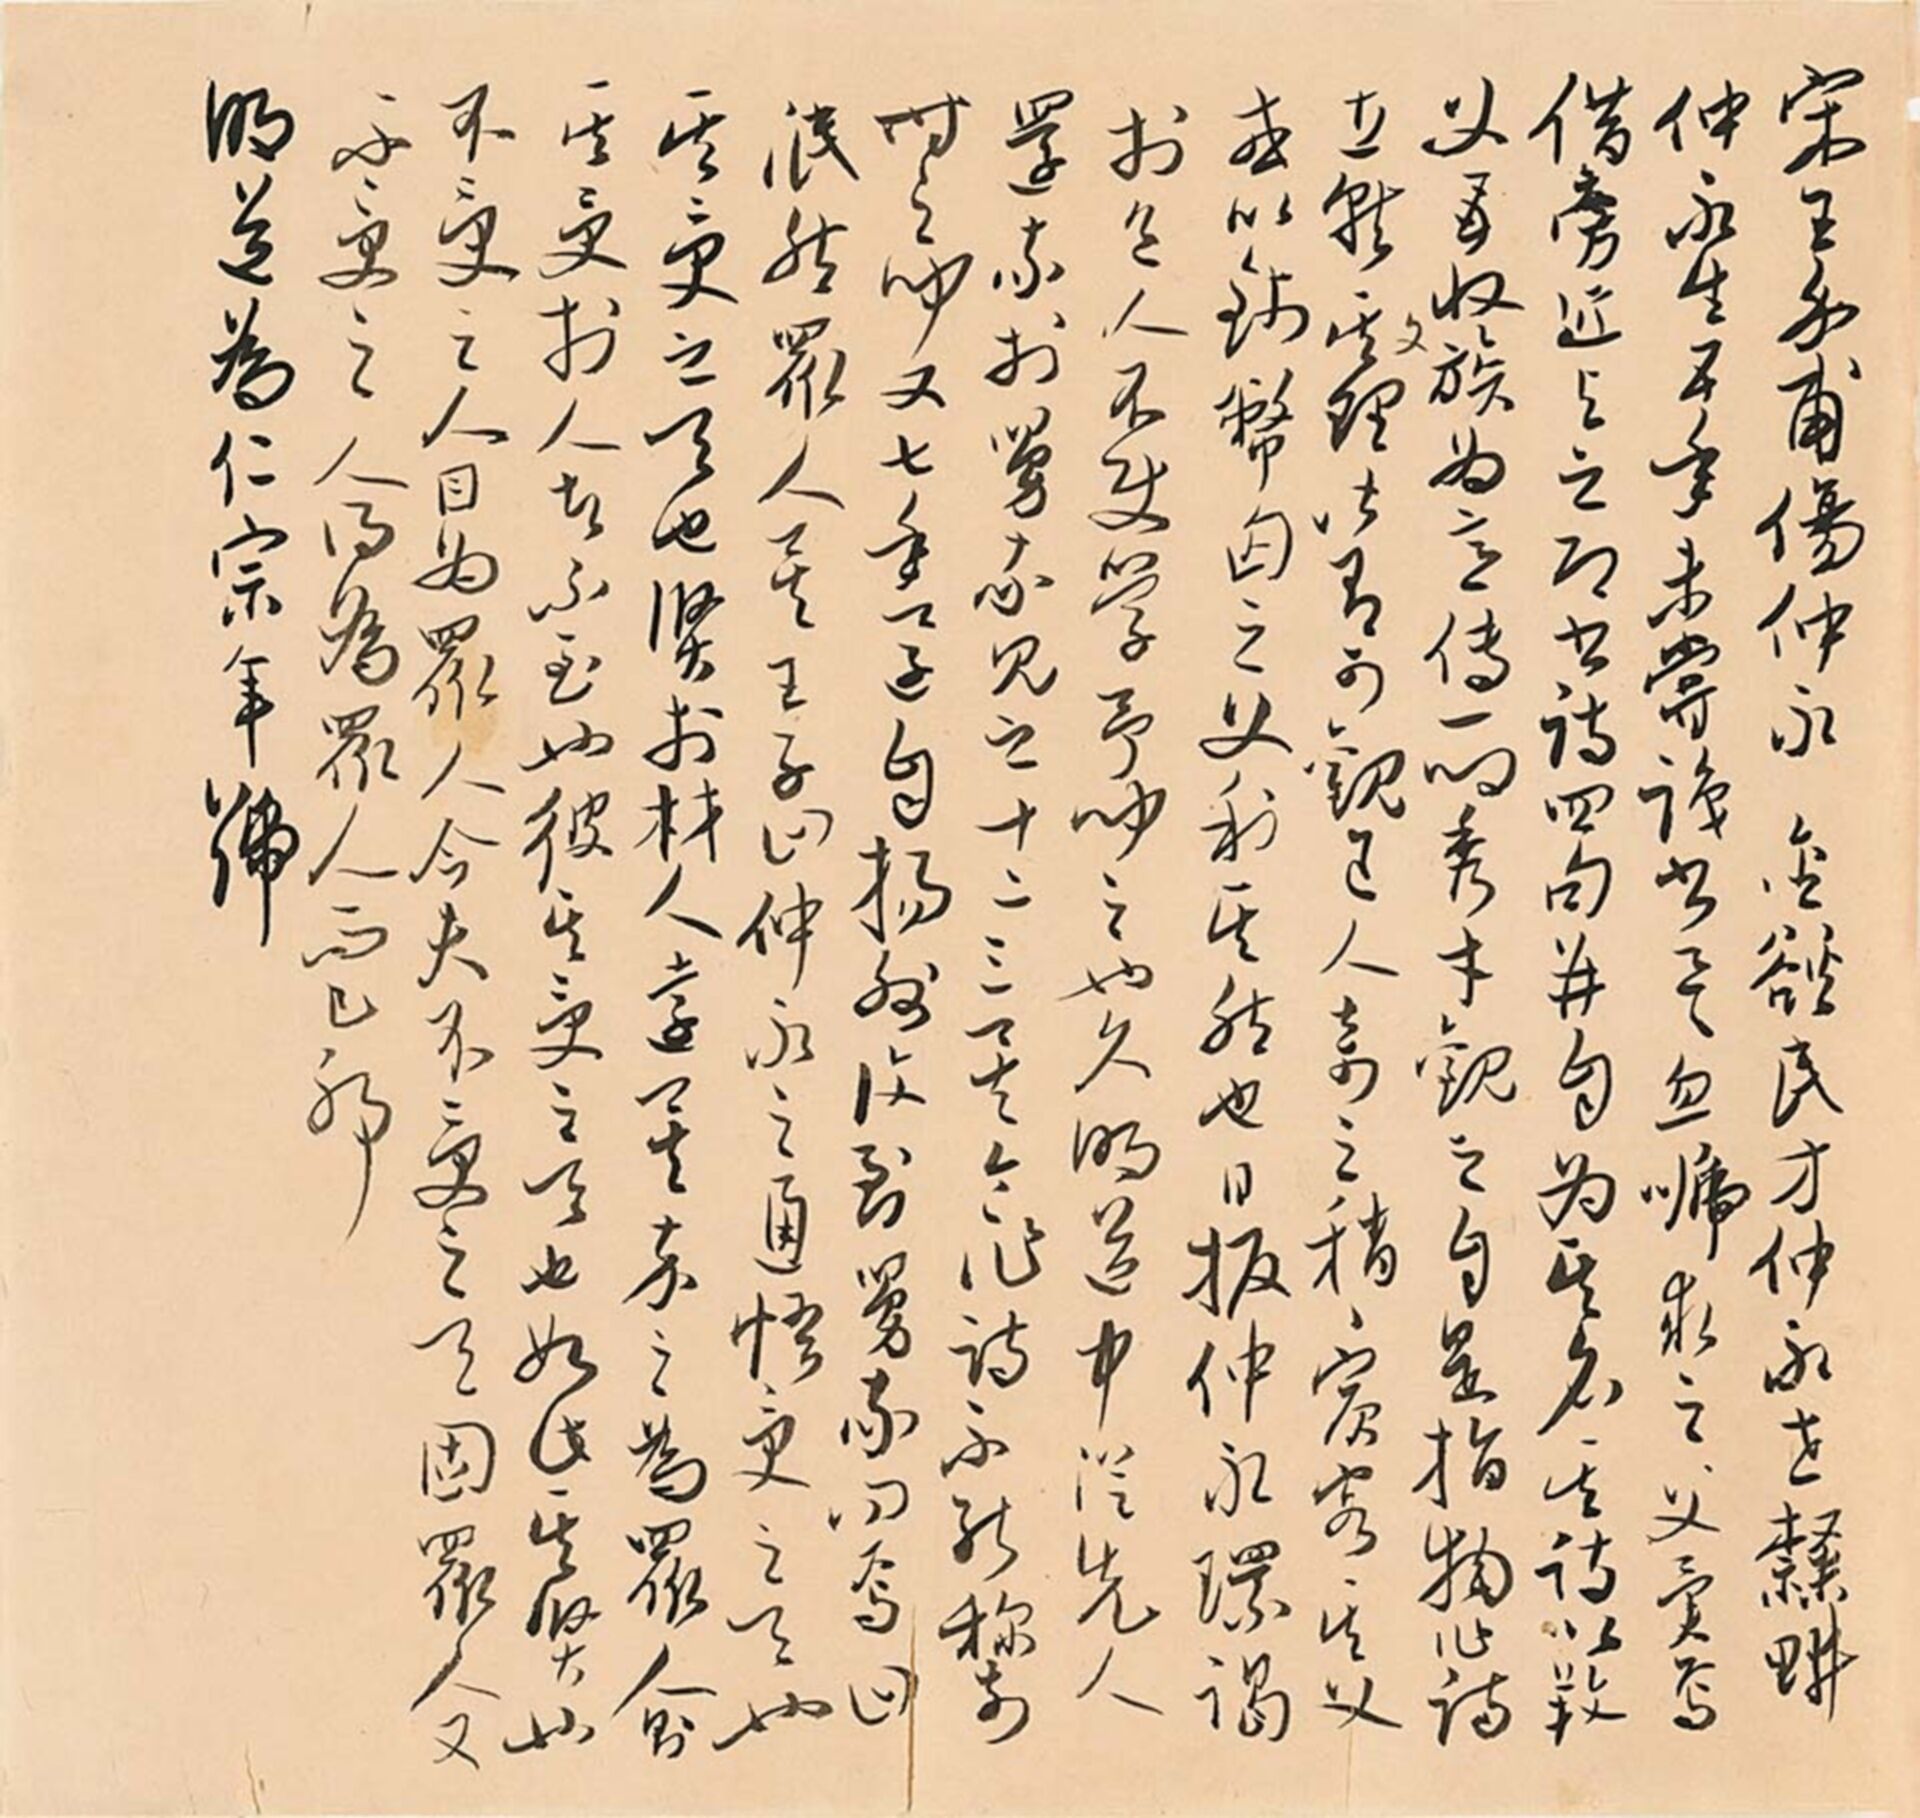 宋王介甫傷仲永 金谿民方仲永世隸畊
仲永生五年未嘗識書具忽嗁求之父異焉
借旁近與之即書詩四句并自為其名其詩以養
父母收族為意傳一鄉秀才觀之自是指物作詩
立就其文理皆有可觀邑人奇之稍稍賓客其父
或以錢幣匄之父利其然也日扳仲永環謁
於邑人不使學予聞之也久明道中從先人
還家於舅家見之十二三矣令作詩不能稱前
時之聞又七年還自揚州復到舅家問焉曰
泯然眾人矣王子曰仲永之通悟受之天也
其受之天也賢於材人遠矣卒之為眾人則
其受於人者不至也彼其受之天也如此其賢也
不受之人且為眾人今夫不受之天固眾人又
不受之人得為眾人而已耶
明道為仁宗年號